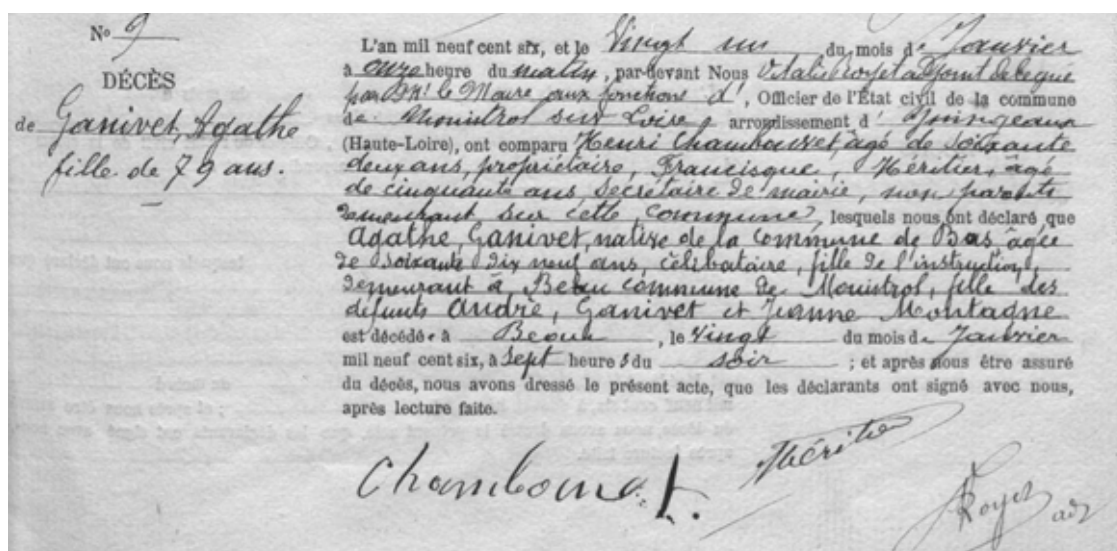 No 9
DÉCÈS
de Ganivet, Agathe
fille de 79 ans.
L'an mil neuf cent six, et le Vingt un du mois de Janvier
à onze heure du matin, par-devant Nous Vital Royet adjoint délégué
par Mr le Maire aux fonctions d', Officier de l'État civil de la commune
de Monistrol sur Loire, arrondissement d'Yssingeaux
(Haute-Loire), ont comparu Henri Chambouvet, âgé de soixante
deux ans, propriétaire, Francisque, Héritier, âgé
de cinquante ans, Secrétaire de mairie, non parents
demeurant sur cette commune, lesquels nous ont déclaré que
Agathe, Ganivet, native de la commune de Bas, âgée
de soixante dix neuf ans, célibataire, fille de l'instruction,
demeurant à Beaux commune de Monistrol, fille des
défunts André, Ganivet et Jeanne Montagne
est décédée à Beaux, le Vingt du mois de Janvier
mil neuf cent six, à Sept heures du soir ; et après nous être assuré
du décès, nous avons dressé le présent acte, que les déclarants ont signé avec nous,
après lecture faite.
Héritier
Chambouvet.
Royet adj